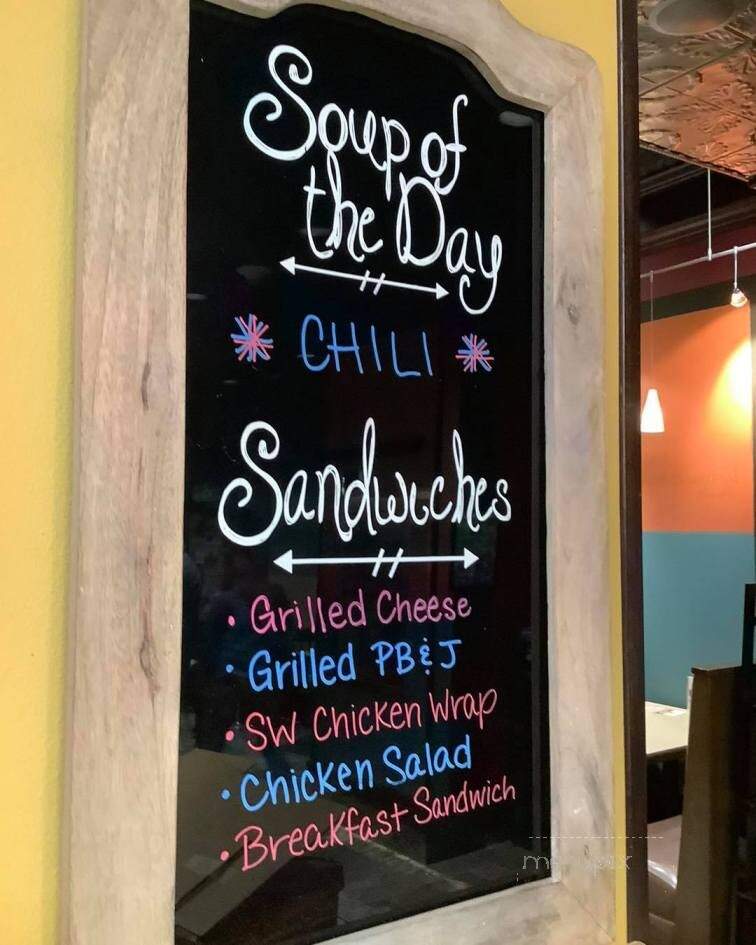 Soup of
the Day
CHILI
Sandwiches
• Grilled Cheese
• Grilled PB & J
• SW Chicken Wrap
• Chicken Salad
• Breakfast Sandwich